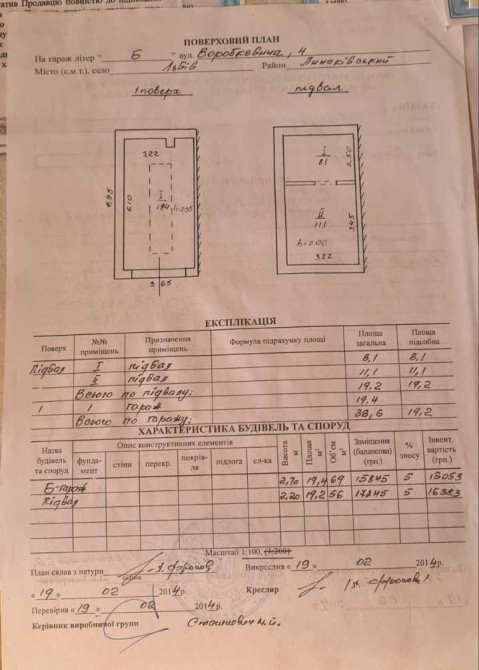 ПОВЕРХОВИЙ ПЛАН
На гараж літер " Б " вул. Воробкевича, 4
Місто (с.м.т.), село Львів Район Личаківський
1 поверх підвал
3,22
I
19,4
6,95
6,10
h=2,55
3,65
I
8,1
2,50
II
11,1
3,45
h=2.00
3,22
ЕКСПЛІКАЦІЯ
Поверх №№ приміщень Призначення приміщень Формула підрахунку площі Площа загальна Площа підсобна
Підвал I підвал 8,1 8,1
II підвал 11,1 11,1
Всього по підвалу: 19,2 19,2
1 1 гараж 19,4
Всього по гаражу: 38,6 19,2
ХАРАКТЕРИСТИКА БУДІВЕЛЬ ТА СПОРУД
Назва будівель та споруд Опис конструктивних елементів Висота м Площа м² Об'єм м³ Заміщення (балансова) (грн.) % зносу Інвент. вартість (грн.)
фундамент стіни перекр. покрівля підлога сл-ка
Б-гараж 2,70 19,4 69 15845 5 15053
Підвал 2,20 19,2 56 17245 5 16383
Масштаб 1:100, (1:200)
План склав з натури Викреслив « 19 » 02 2014р.
« 19 » 02 2014р. Кресляр
Перевірив « 19 » 02 2014р.
Керівник виробничої групи